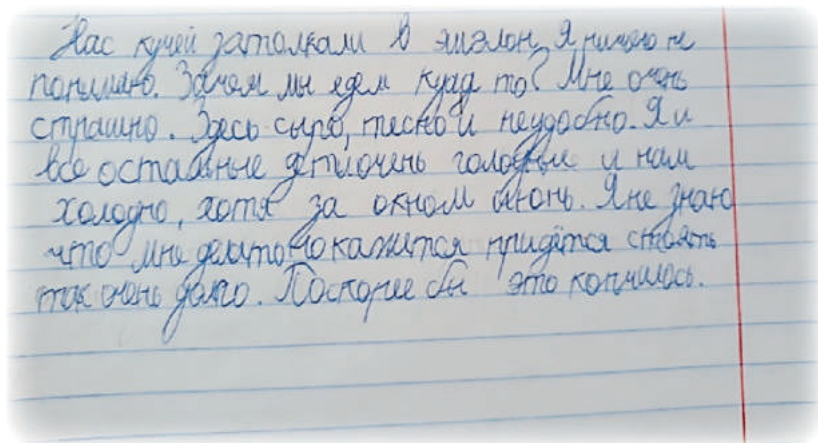 Нас кучей затолкали в эшэлон, я ничего не
понимаю. Зачем мы едем куда то? Мне очень
страшно. Здесь сыро, тесно и неудобно. Я и
все остальные дети очень голодные и нам
холодно, хотя за окном июнь. Я не знаю
что мне делать, но кажится придётся стоять
так очень долго. Поскорее бы это кончилось.